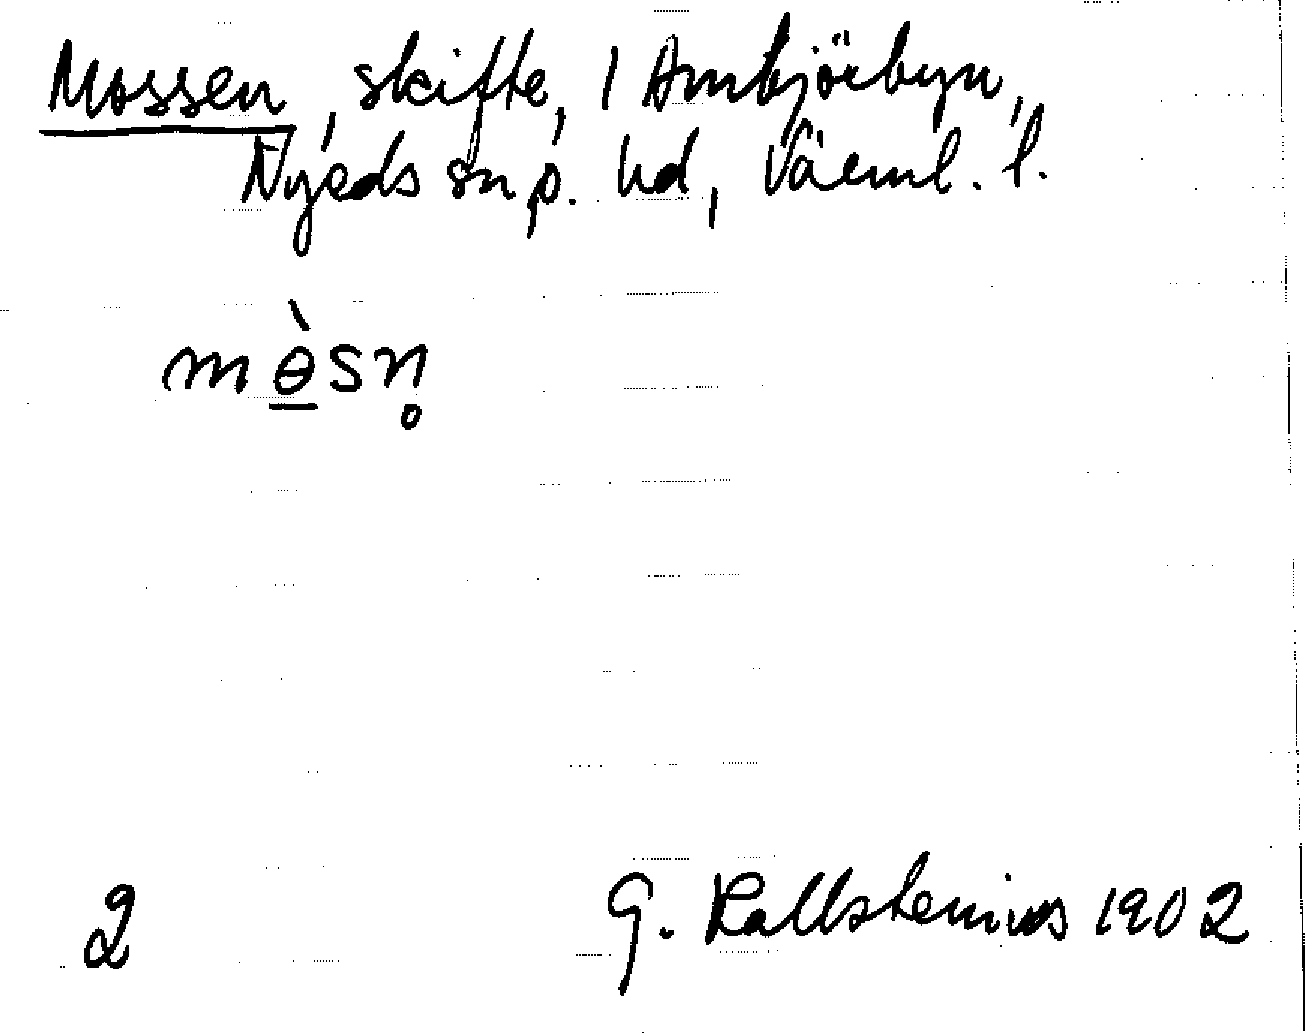 Mossen, skifte, i Ambjörbyn,
Nyeds sn p. hd, Värml. l.
mèsn̥
2 G. Kallstenius 1902